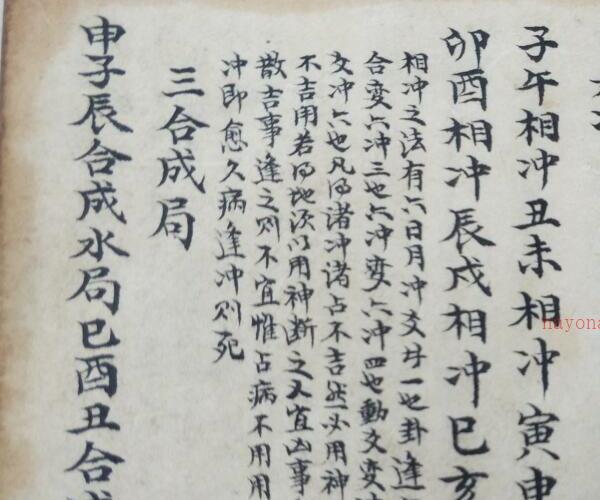 子午相冲丑未相冲寅申
卯酉相冲辰戌相冲巳亥
相冲之法有六日月冲爻廿一也卦逢
合变六冲三也六冲变六冲四也動爻变
爻冲六也凡得諸冲諸占不吉然必用神
不吉用若得地須以用神断之又宜凶事
散吉事逢之则不宜惟占病不用用
冲即愈久病逢冲则死
三合成局
申子辰合成水局巳酉丑合成
huyona